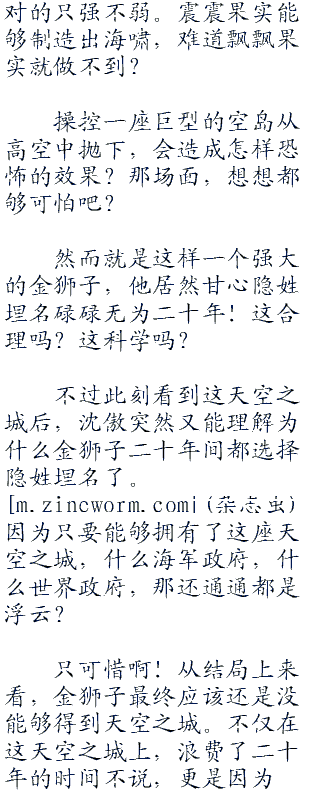 对的只强不弱。震震果实能
够制造出海啸，难道飘飘果
实就做不到？
操控一座巨型的空岛从
高空中抛下，会造成怎样恐
怖的效果？那场面，想想都
够可怕吧？
然而就是这样一个强大
的金狮子，他居然甘心隐姓
埋名碌碌无为二十年！这合
理吗？这科学吗？
不过此刻看到这天空之
城后，沈傲突然又能理解为
什么金狮子二十年间都选择
隐姓埋名了。
[m.zincworm.com|(杂志虫)
因为只要能够拥有了这座天
空之城，什么海军政府，什
么世界政府，那还通通都是
浮云？
只可惜啊！从结局上来
看，金狮子最终应该还是没
能够得到天空之城。不仅在
这天空之城上，浪费了二十
年的时间不说，更是因为